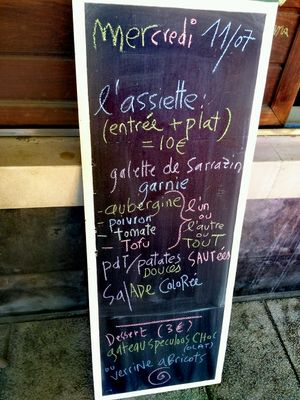 mercredi 11/07
l'assiette:
(entrée + plat)
= 10€
galette de Sarrazin
garnie
- aubergine
- poivron
- tomate
- Tofu
l'un
ou
l'autre
ou
TOUT
pdt/patates SAUTÉES
DOUCES
SalADE ColoRée
Dessert (3€)
gateau speculoos CHOC
(OLAT)
ou verrine abricots